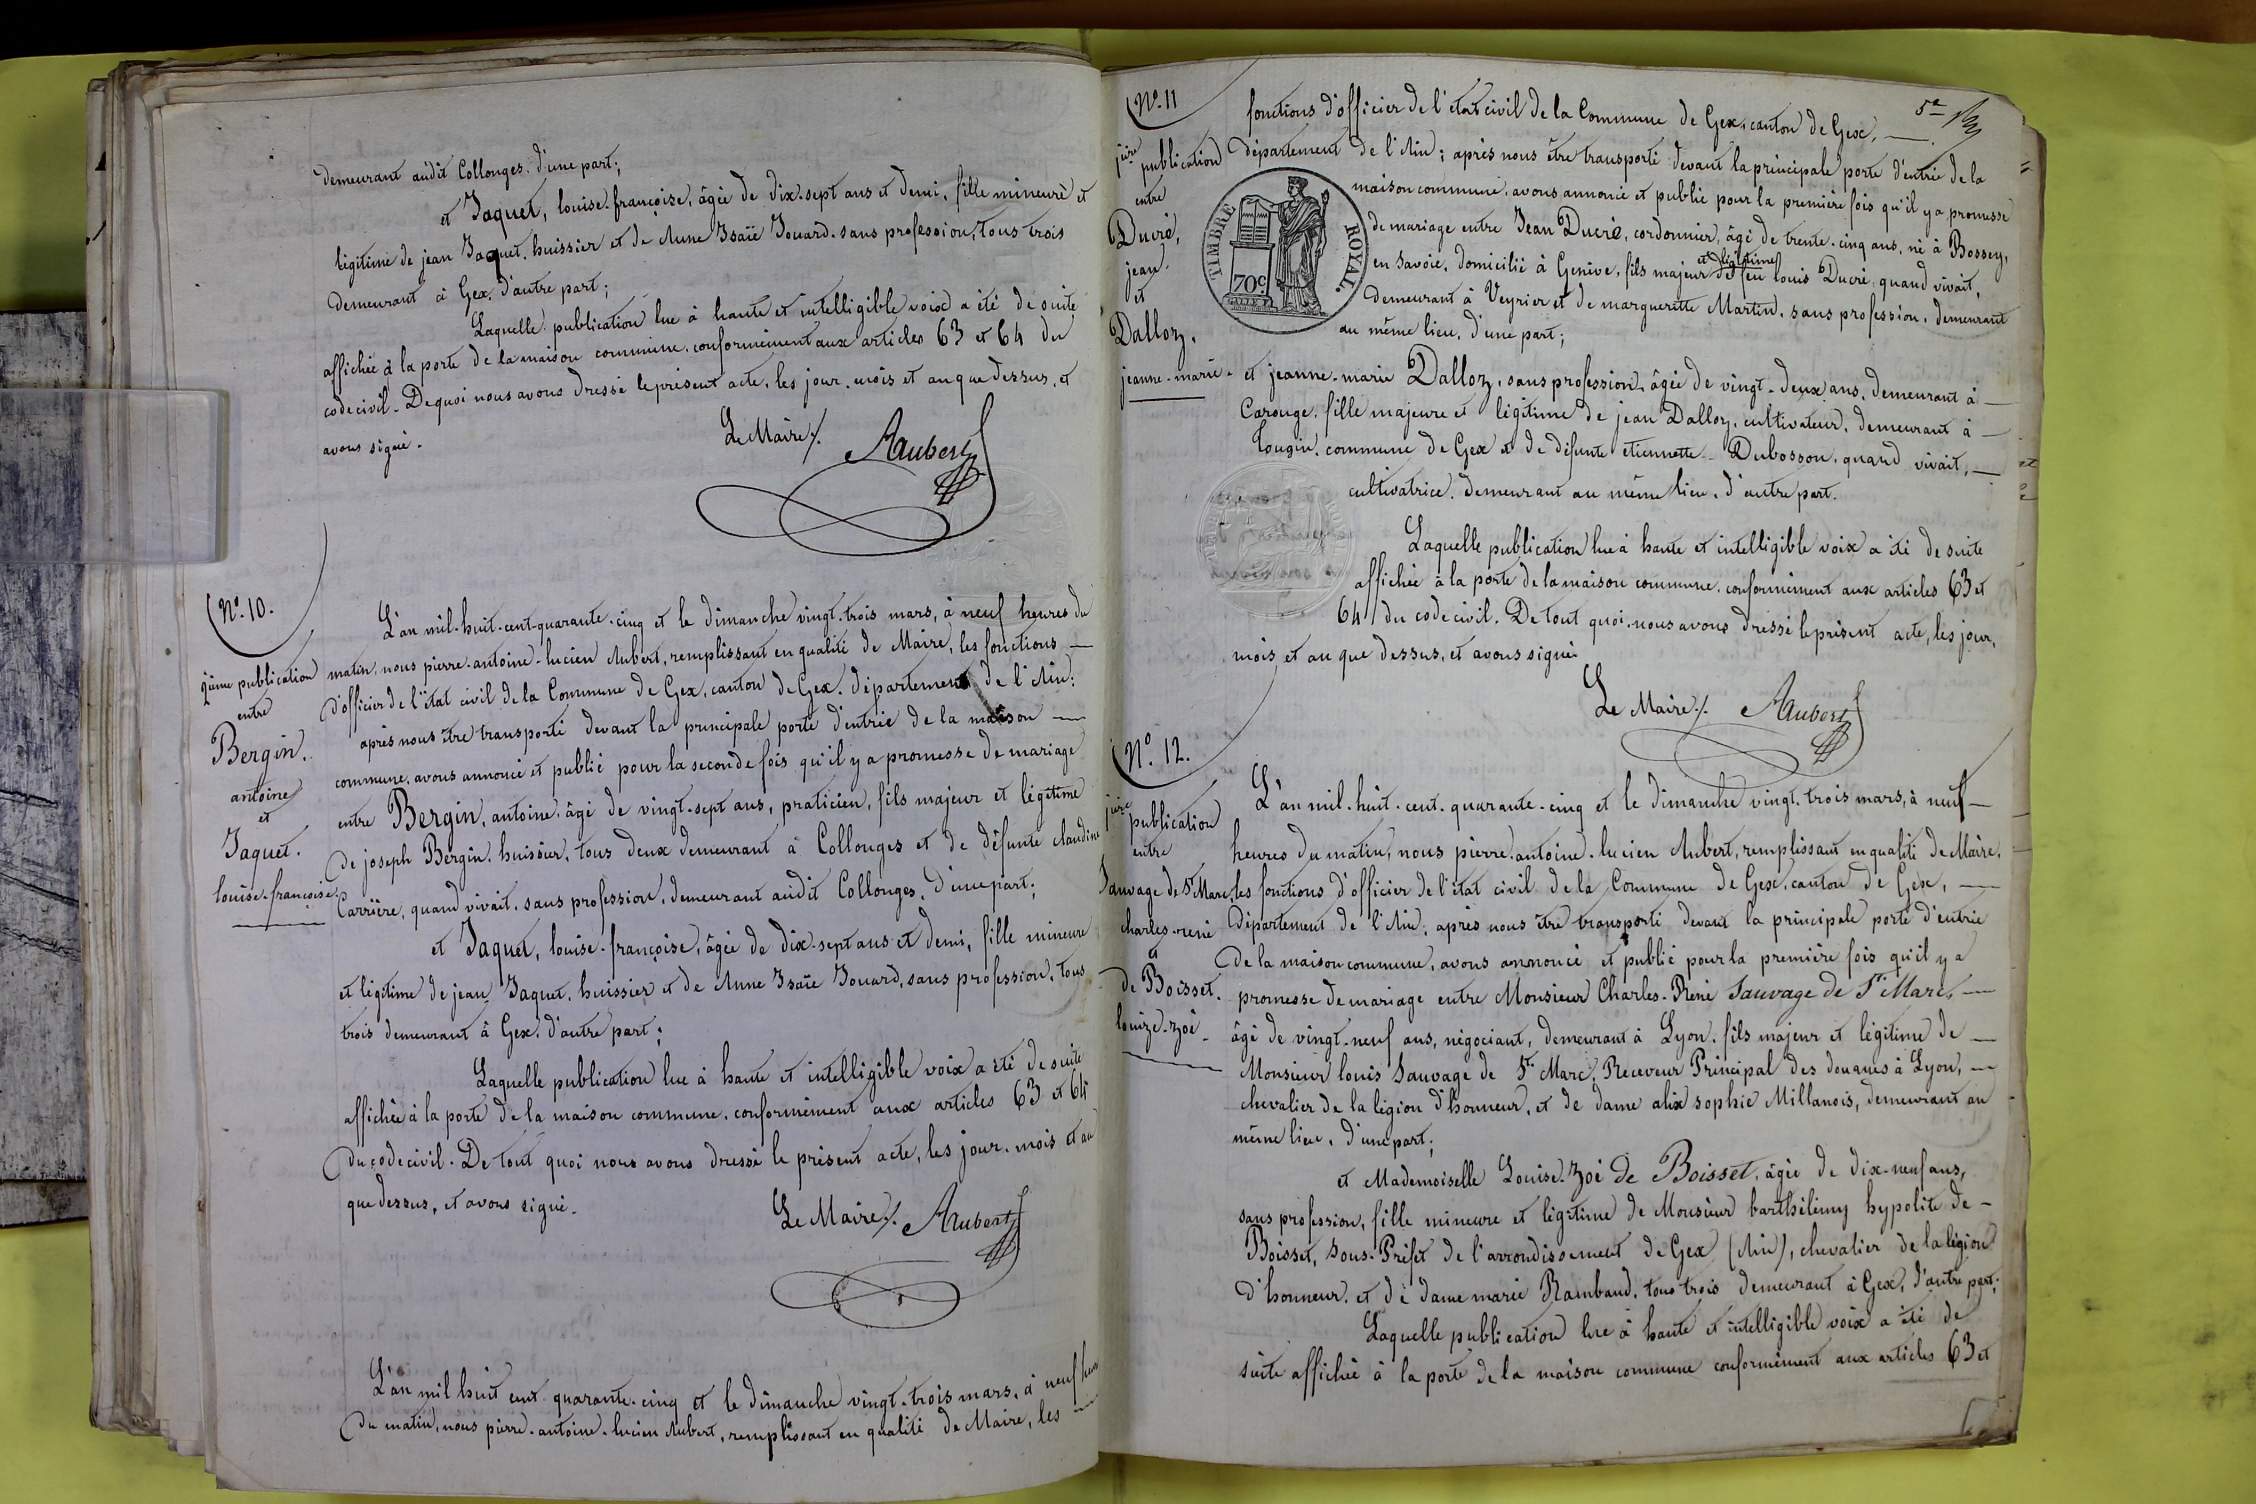 demeurant audit Collonges. d'une part;
et Jaquet, louise-françoise, âgée de dix-sept ans et demi, fille mineure et
légitime de jean Jaquet, huissier et de Anne Isaïe Jouard. sans profession, tous trois
demeurant à Gex. d'autre part;
Laquelle publication lue à haute et intelligible voix a été de suite
affichée à la porte de la maison commune. conformément aux articles 63 et 64 du
code civil. De quoi nous avons dressé le présent acte, les jour. mois et an que dessus, et
avons signé.
Le Maire/. Aubert
N°. 10.
2ième publication
entre
Bergin.
antoine
et
Jaquet.
louise-françoise.
L'an mil-huit-cent-quarante-cinq et le dimanche vingt-trois mars, à neuf heures du
matin, nous pierre-antoine-lucien Aubert, remplissant en qualité de Maire, les fonctions —
d'officier de l'état civil de la Commune de Gex, canton de Gex. département de l'Ain:
après nous être transporté devant la principale porte d'entrée de la maison —
commune. avons annoncé et publié pour la seconde fois qu'il y a promesse de mariage
entre Bergin. antoine. âgé de vingt-sept ans, praticien, fils majeur et légitime
de joseph Bergin. huissier. tous deux demeurant à Collonges et de défunte claudine
Carrière, quand vivait. sans profession. demeurant audit Collonges. d'une part;
et Jaquet, louise-françoise, âgée de dix-sept ans et demi, fille mineure
et légitime de jean Jaquet. huissier et de Anne Isaïe Jouard, sans profession. tous
trois demeurant à Gex. d'autre part;
Laquelle publication lue à haute et intelligible voix a été de suite
affichée à la porte de la maison commune. conformément aux articles 63 et 64
du code civil. De tout quoi nous avons dressé le présent acte, les jour. mois et an
que dessus, et avons signé.
Le Maire/. Aubert
L'an mil huit cent quarante-cinq et le dimanche vingt-trois mars. à neuf heures
du matin, nous pierre-antoine-lucien Aubert, remplissant en qualité de Maire, les —
5e
N°. 11
1ière publication
entre
Ducré,
jean.
et
Dalloz.
jeanne-marie.
fonctions d'officier de l'état civil de la Commune de Gex, canton de Gex, —
département de l'Ain; après nous être transporté devant la principale porte d'entrée de la
maison commune. avons annoncé et publié pour la première fois qu'il y a promesse
de mariage entre Jean Ducré, cordonnier, âgé de trente-cinq ans, né à Bossey,
en Savoie, domicilié à Genève, fils majeur et légitime de feu louis Ducré, quand vivait,
demeurant à Veyrier et de marguerette Martin. sans profession. demeurant
au même lieu. d'une part;
TIMBRE ROYAL.
70c.
et jeanne-marie Dalloz, sans profession, âgée de vingt-deux ans. demeurant à —
Carouge. fille majeure et légitime de jean Dalloz, cultivateur. demeurant à —
Tougin. commune de Gex et de défunte etiennette Dubosson, quand vivait, —
cultivatrice. demeurant au même lieu. d'autre part.
Laquelle publication lue à haute et intelligible voix a été de suite
affichée à la porte de la maison commune. conformément aux articles 63 et
64 du code civil. De tout quoi nous avons dressé le présent acte, les jour,
mois et an que dessus, et avons signé
Le Maire/. Aubert
N°. 12.
1ière
publication
entre
Sauvage de St Marc,
charles-rené
et
de Boisset.
louize-zoé
L'an mil-huit-cent-quarante-cinq et le dimanche vingt-trois mars, à neuf —
heures du matin, nous pierre-antoine-lucien Aubert, remplissant en qualité de Maire.
les fonctions d'officier de l'état civil de la Commune de Gex, canton de Gex, —
Département de l'Ain, après nous être transporté devant la principale porte d'entrée
de la maison commune, avons annoncé et publié pour la première fois qu'il y a
promesse de mariage entre Monsieur Charles-René Sauvage de St Marc, —
âgé de vingt-neuf ans, négociant, demeurant à Lyon. fils majeur et légitime de —
Monsieur louis Sauvage de St Marc, Receveur Principal des douanes à Lyon, —
chevalier de la légion d'honneur, et de dame alix sophie Millanois, demeurant au
même lieu, d'une part;
et Mademoiselle Louise-zoé de Boisset, âgée de dix-neuf ans,
sans profession, fille mineure et légitime de Monsieur barthélémy hypolite de —
Boisset, Sous-Préfet de l'arrondissement de Gex (Ain), chevalier de la légion
d'honneur, et de dame marie Rambaud, tous trois demeurant à Gex, d'autre part;
Laquelle publication lue à haute et intelligible voix a été de
suite affichée à la porte de la maison commune conformément aux articles 63 et